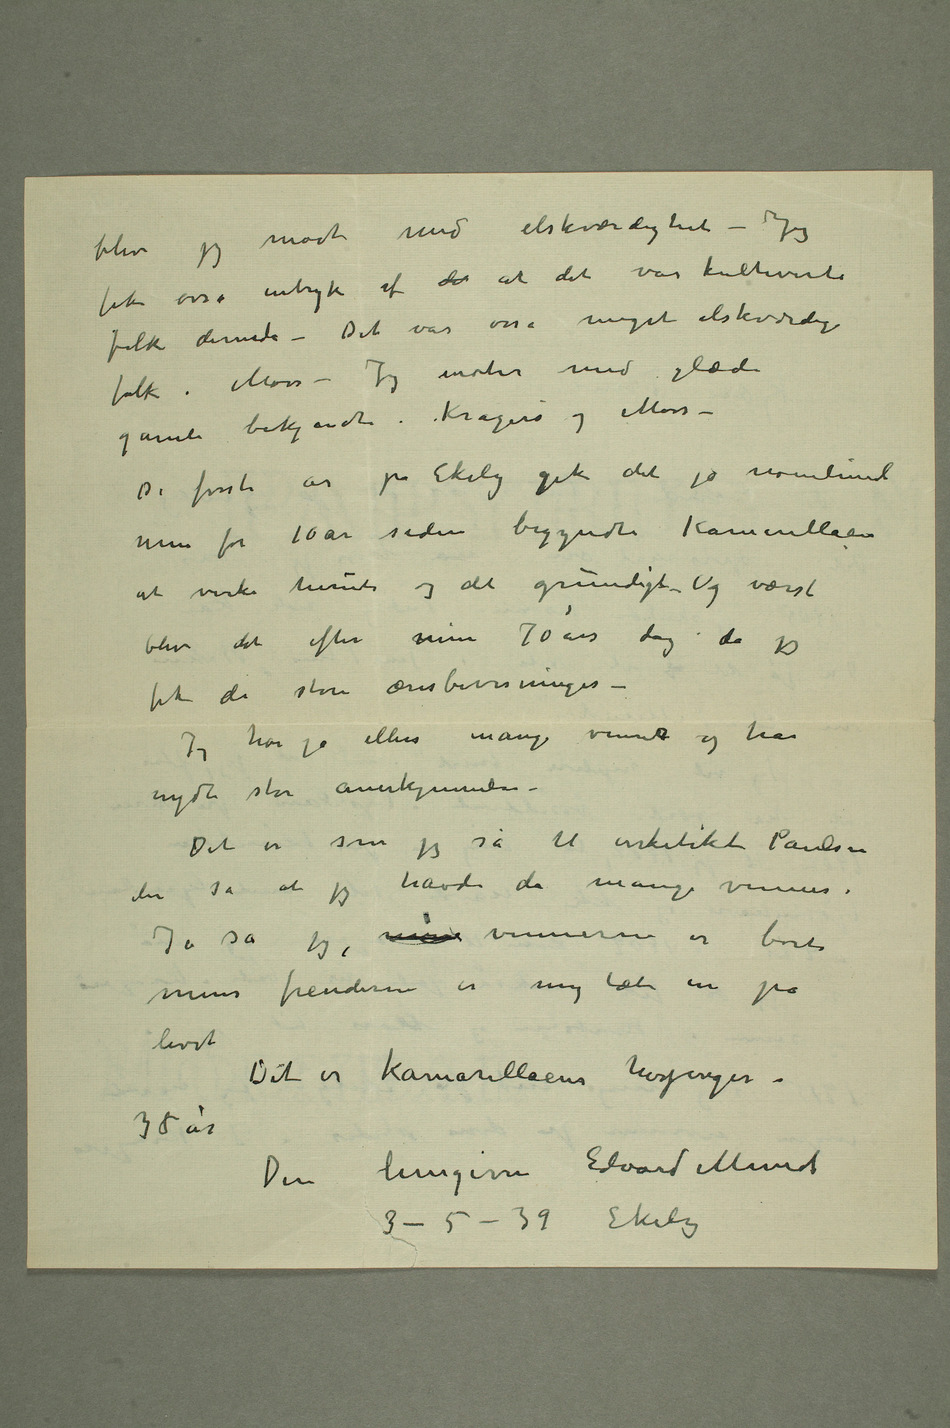 blev jeg mødt med elskværdighet – Jeg
fik osså intryk af det at det var kultiverte
folk dernede – Det var osså meget elskværdige
folk i Moss – Jeg møter med glæde
gamle bekjendte i Kragerø og Moss –
De første år på Ekely gik det jo nomelund
men for 10 år siden begyndte Kamarillaen
at virke herute og det grundigt – Og værst
blev det efter min 70 års dag da jeg
fik de store æresbevisninger –
Jeg har jo ellers mange venner og har
nydt stor anerkjennelse –
Det er som jeg sa til arkitekt Paulsen
der sa at jeg havde da mange venner.
Ja sa jeg, mine vennerne er borte
mens fienderne er mig tæt in på
livet
Det er Kamarillaens herjinger –
38 år
Din hengivne Edvard Munch
3 – 5 – 39 Ekely